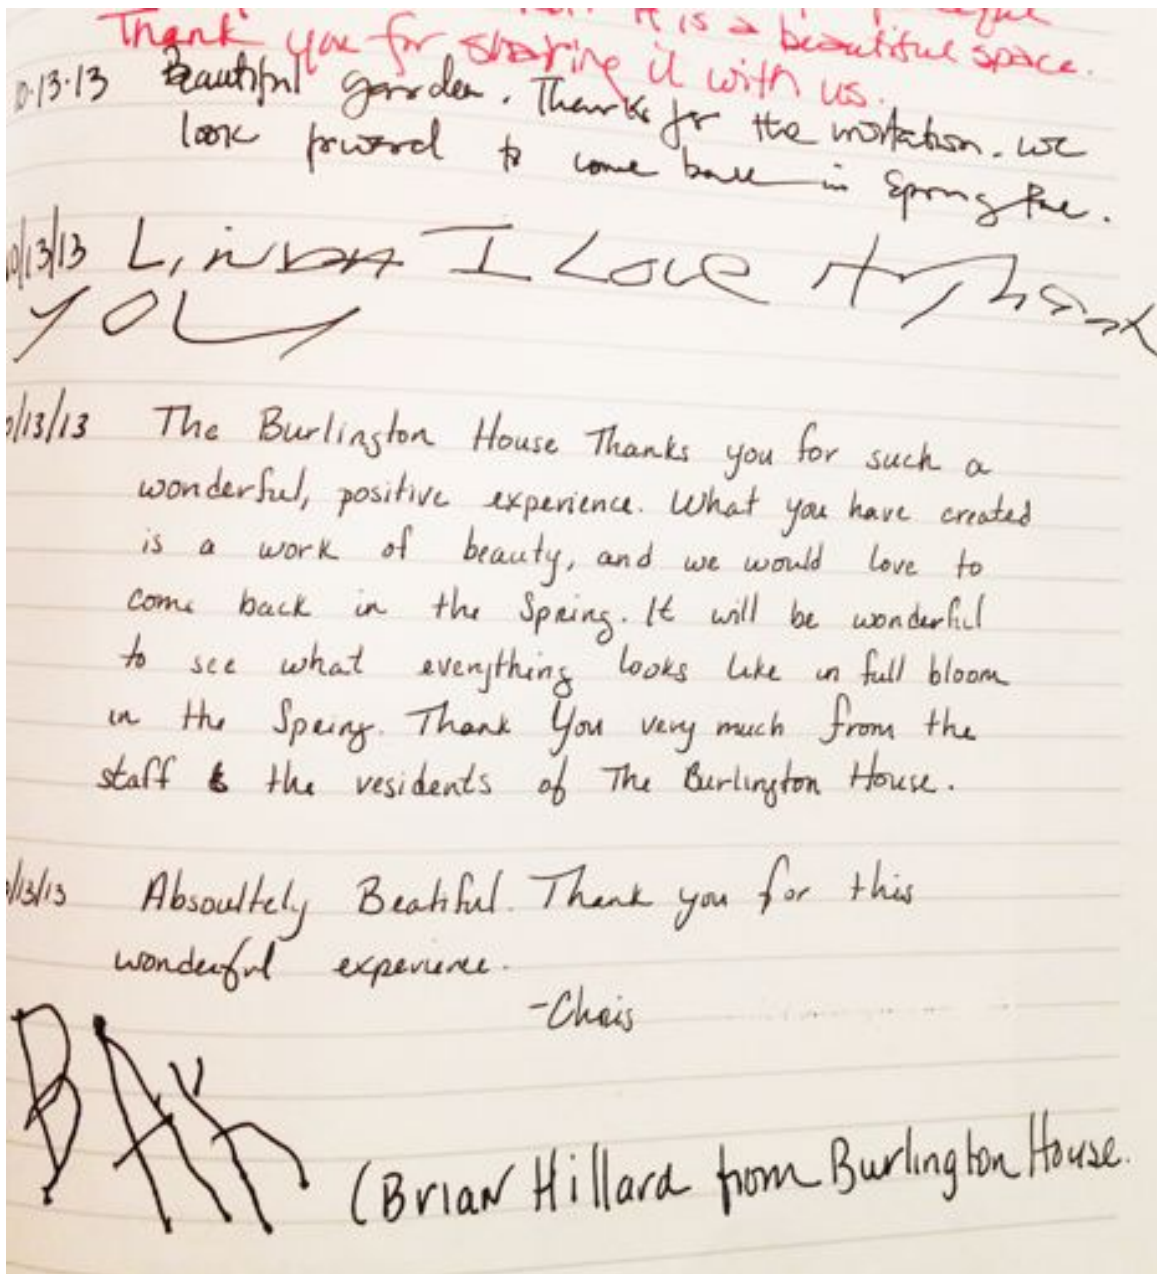 it is a beautiful space.
Thank you for sharing it with us.
0·13·13 Beautiful garden. Thanks for the invitation. We
look forward to come back in Spring time.
10/13/13 Linda I Love it Thank
YOU
0/13/13 The Burlington House Thanks you for such a
wonderful, positive experience. What you have created
is a work of beauty, and we would love to
come back in the Spring. It will be wonderful
to see what everything looks like in full bloom
in the Spring. Thank You very much from the
staff & the residents of The Burlington House.
/13/13 Absoultely Beatiful. Thank you for this
wonderful experience.
-Chris
BAH
(Brian Hillard from Burlington House.